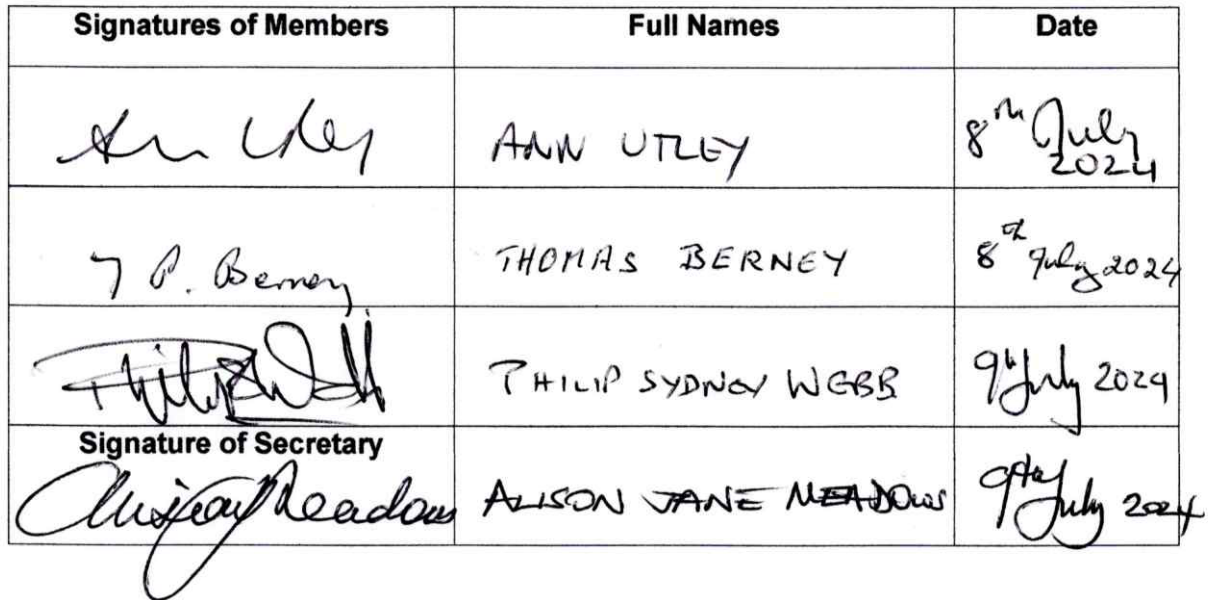 Signatures of Members Full Names Date
Ann Utley ANN UTLEY 8th July
2024
T P. Berney THOMAS BERNEY 8th July 2024
Philip S Webb PHILIP SYDNEY WEBB 9th July 2024
Signature of Secretary
Meadows ALISON JANE MEADOWS 9th July 2024